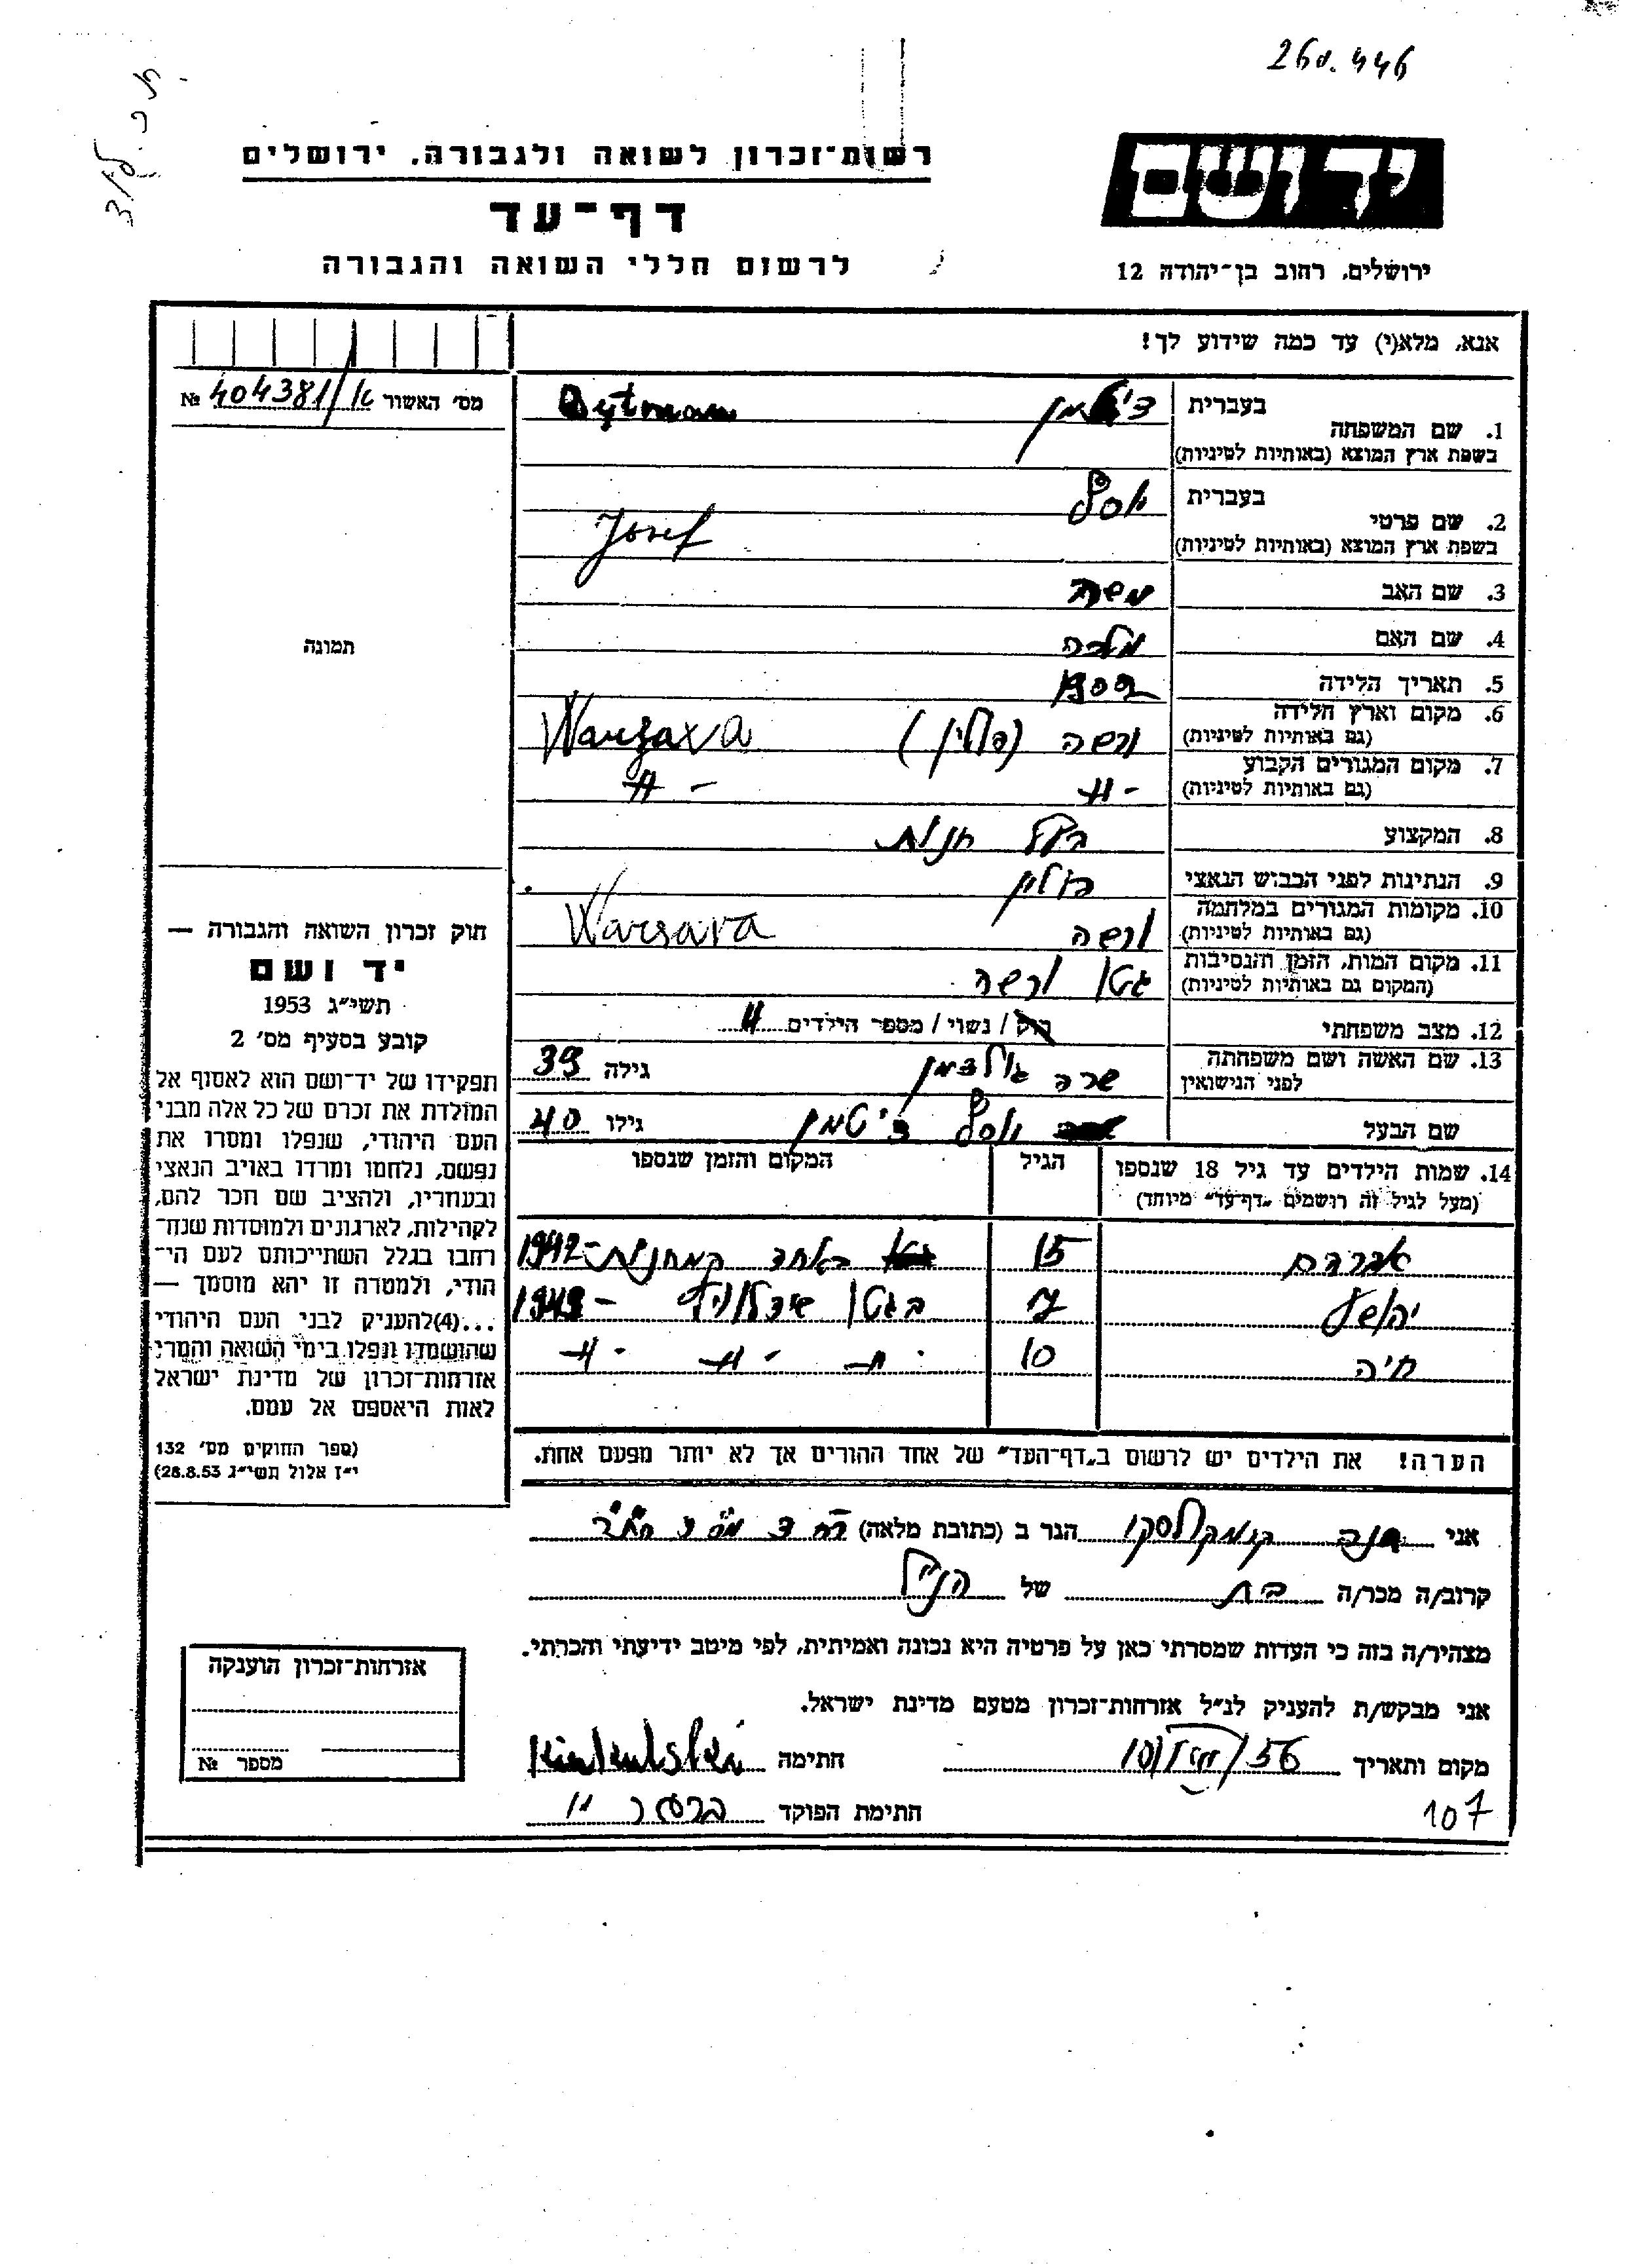 260.446
יד ושם
ירושלים, רחוב בן־יהודה 12
רשות־זכרון לשואה ולגבורה, ירושלים
דף־עד
לרשום חללי השואה והגבורה
אנא, מלא(י) עד כמה שידוע לך!
מס׳ האשור 404381/א №
1. שם המשפחה
בעברית
בשפת ארץ המוצא (באותיות לטיניות)
2. שם פרטי
בעברית יוסף
בשפת ארץ המוצא (באותיות לטיניות) Josef
3. שם האב משה
4. שם האם מלכה
5. תאריך הלידה
6. מקום וארץ הלידה ורשה (פולין) Warszawa
(גם באותיות לטיניות)
7. מקום המגורים הקבוע -״- -״-
(גם באותיות לטיניות)
8. המקצוע בעל חנות
9. הנתינות לפני הכבוש הנאצי פולין
10. מקומות המגורים במלחמה ורשה Warsava
(גם באותיות לטיניות)
11. מקום המות, הזמן והנסיבות גטו ורשה
(המקום גם באותיות לטיניות)
12. מצב משפחתי רווק / נשוי / מספר הילדים 4
13. שם האשה ושם משפחתה שרה גולדמן גילה 39
לפני הנישואין
שם הבעל יוסף ציטמן גילו 40
14. שמות הילדים עד גיל 18 שנספו הגיל המקום והזמן שנספו
(מעל לגיל זה רושמים „דף־עד״ מיוחד)
אברהם 15 באחד המחנות - 1942
יהושע 7
חיה 10 -״- -״- -״-
הערה! את הילדים יש לרשום ב„דף־העד״ של אחד ההורים אך לא יותר מפעם אחת.
תמונה
חוק זכרון השואה והגבורה —
יד ושם
תשי״ג 1953
קובע בסעיף מס׳ 2
תפקידו של יד־ושם הוא לאסוף אל
המולדת את זכרם של כל אלה מבני
העם היהודי, שנפלו ומסרו את
נפשם, נלחמו ומרדו באויב הנאצי
ובעוזריו, ולהציב שם וזכר להם,
לקהילות, לארגונים ולמוסדות שנח־
רבו בגלל השתייכותם לעם הי־
הודי, ולמטרה זו יהא מוסמך —
...(4) להעניק לבני העם היהודי
שהושמדו ונפלו בימי השואה והמרי
אזרחות־זכרון של מדינת ישראל
לאות היאספם אל עמם.
(ספר החוקים מס׳ 132
י״ז אלול תשי״ג 28.8.53)
אני חנה הגר ב (כתובת מלאה)
קרוב/ה מכר/ה בת של הנ״ל
מצהיר/ה בזה כי העדות שמסרתי כאן על פרטיה היא נכונה ואמיתית, לפי מיטב ידיעתי והכרתי.
אני מבקש/ת להעניק לנ״ל אזרחות־זכרון מטעם מדינת ישראל.
מקום ותאריך חתימה
חתימת הפוקד
107
אזרחות־זכרון הוענקה
מספר №